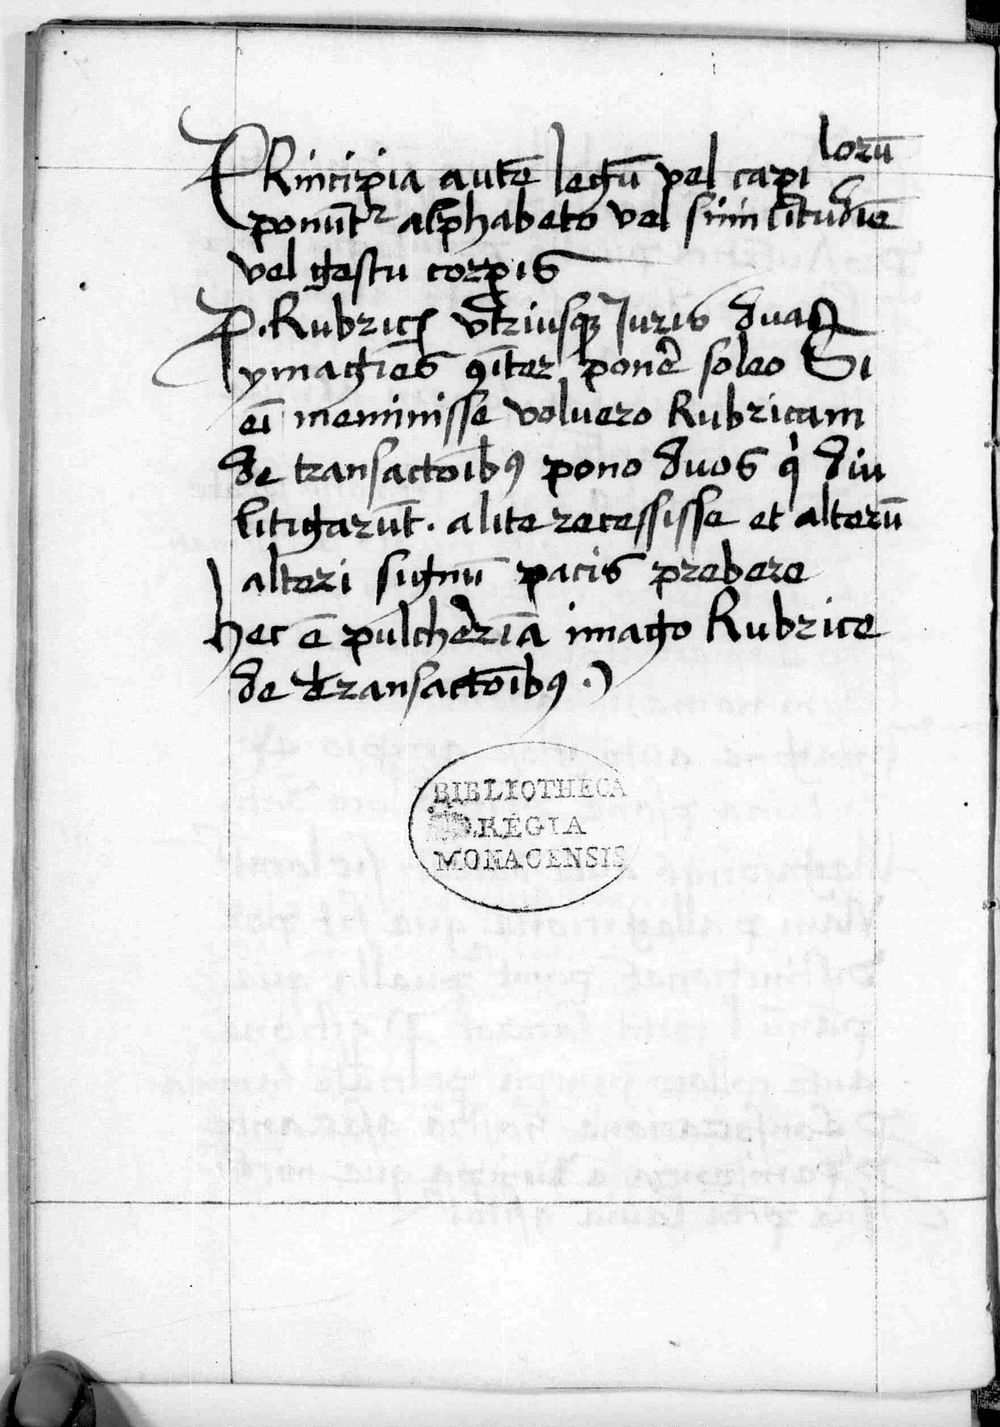 PRincipia autē legū vel capi lorū
ponūtr alphabeto vel similitudīe
vel gestu corpis
P. Rubrice vtriusqȝ Juris duas
ymagīes 9īter ponē soleo Si
eī meminisse volvero Rubricam
de transactōibꝰ pono duos qi diu
litigarūt. a lite recessisse et alterū
alteri signū pacis prebere
hec ē pulcherīa imago Rubrice
de transactōibꝰ .)
BIBLIOTHECA
REGIA
MONACENSIS